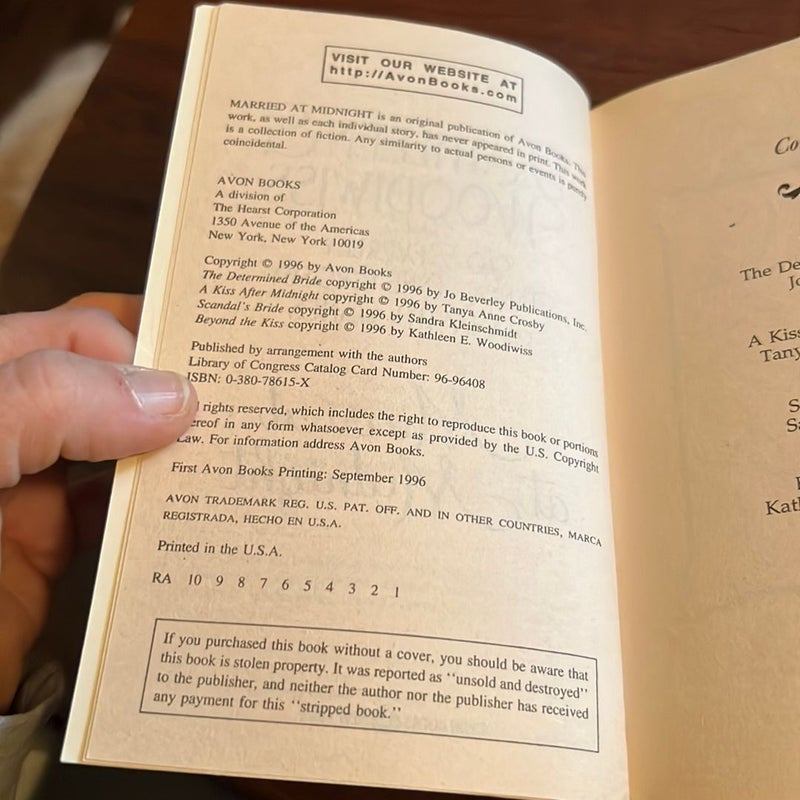 VISIT OUR WEBSITE AT
http://AvonBooks.com
MARRIED AT MIDNIGHT is an original publication of Avon Books. This
work, as well as each individual story, has never appeared in print. This work
is a collection of fiction. Any similarity to actual persons or events is purely
coincidental.
AVON BOOKS
A division of
The Hearst Corporation
1350 Avenue of the Americas
New York, New York 10019
Copyright © 1996 by Avon Books
The Determined Bride copyright © 1996 by Jo Beverley Publications, Inc.
A Kiss After Midnight copyright © 1996 by Tanya Anne Crosby
Scandal's Bride copyright © 1996 by Sandra Kleinschmidt
Beyond the Kiss copyright © 1996 by Kathleen E. Woodiwiss
Published by arrangement with the authors
Library of Congress Catalog Card Number: 96-96408
ISBN: 0-380-78615-X
rights reserved, which includes the right to reproduce this book or portions
ereof in any form whatsoever except as provided by the U.S. Copyright
Law. For information address Avon Books.
First Avon Books Printing: September 1996
AVON TRADEMARK REG. U.S. PAT. OFF. AND IN OTHER COUNTRIES, MARCA
REGISTRADA, HECHO EN U.S.A.
Printed in the U.S.A.
RA 10 9 8 7 6 5 4 3 2 1
If you purchased this book without a cover, you should be aware that
this book is stolen property. It was reported as "unsold and destroyed"
to the publisher, and neither the author nor the publisher has received
any payment for this "stripped book."
Co
The De
Jo
A Kiss
Tany
S
Sa
Kath